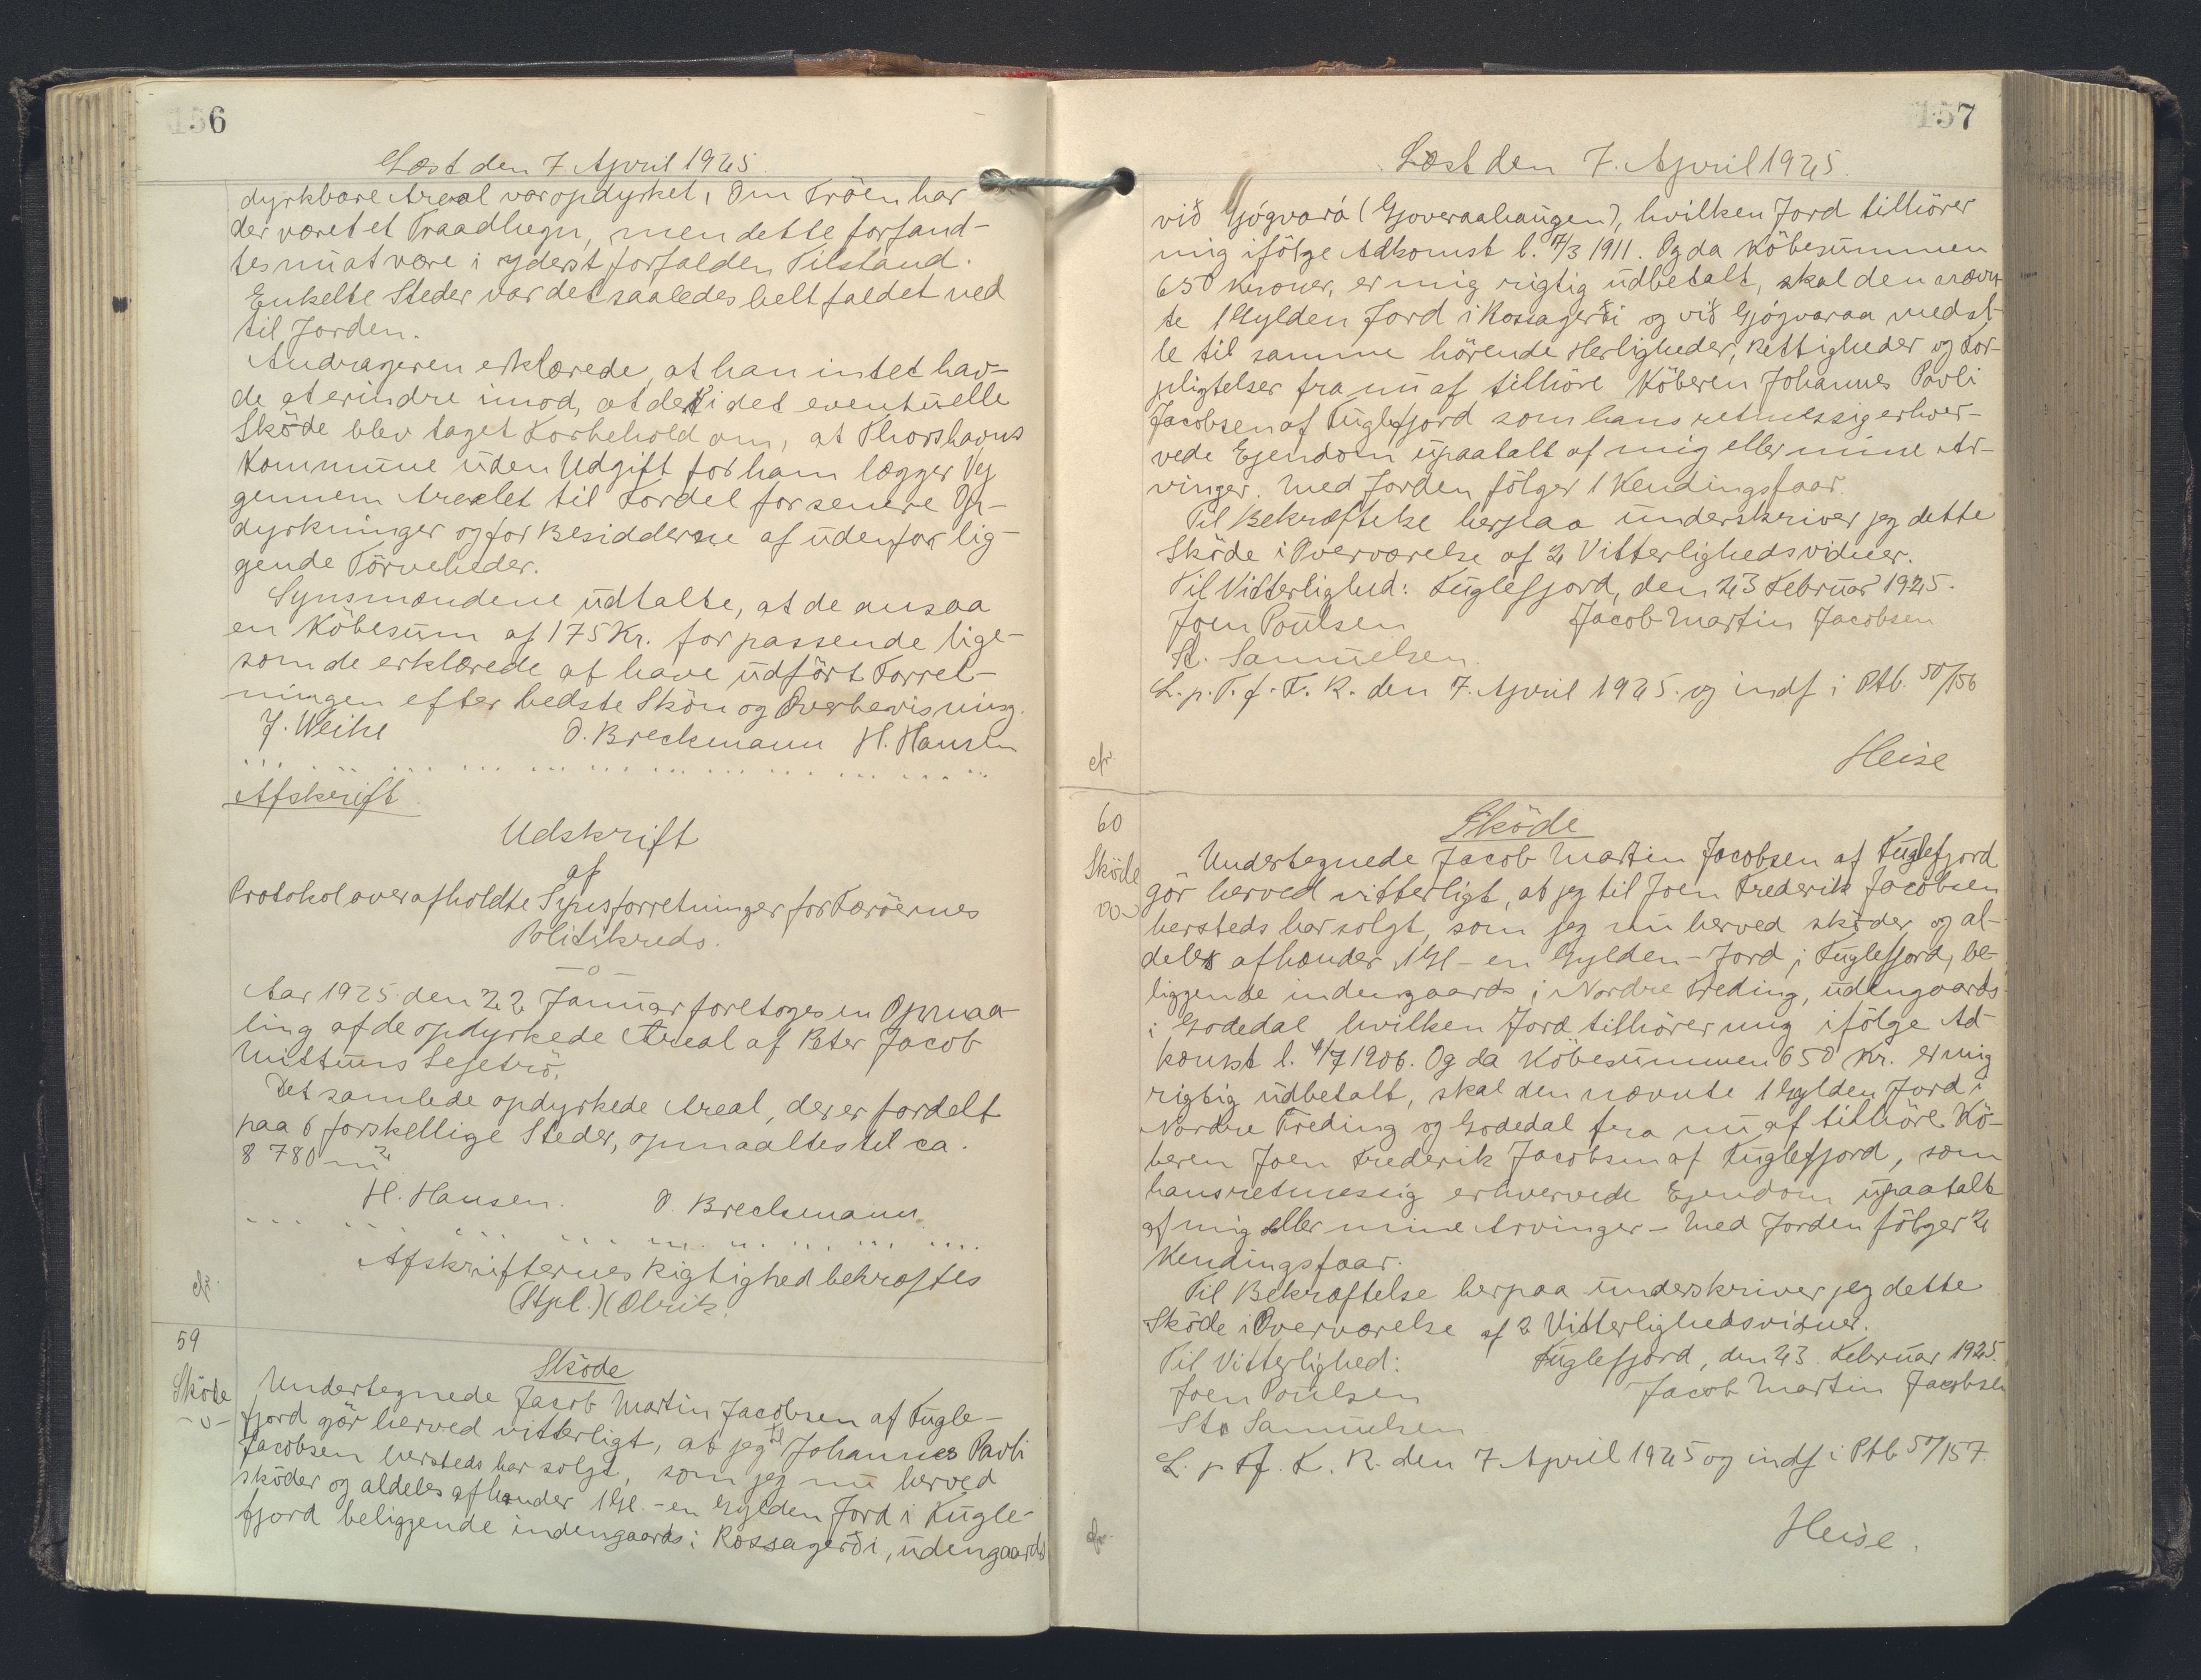 156
Læst den 7 April 1925.
dyrkbare Areal var opdyrket, Om Tröen har
der været et Traadhegn, men dette forfand-
tes nu at være i yderst forfalden Tilstand.
Enkelte Steder var det saaledes helt faldet ned
til Jorden.
Andrageren erklærede, at han intet hav-
de at erindre imod, at der i det eventuelle
Sköde blev taget Forbehold om, at Thorshavns
Kommune uden Udgift for ham lægger Vej
gennem Arealet til Fordel for senere Op-
dyrkninger og for Besidderne af udenfor lig-
gende Törveheder.
Synsmændene udtalte, at de ansaa
en Köbesum af 175 Kr. for passende lige-
som de erklærede at have udfört Forret-
ningen efter bedste Skön og Overbevisning.
J. Weihe D. Breckmann H. Hansen
Afskrift
Udskrift
af
Protokol over afholdte Synsforretninger for Færöernes
Politikreds.
—o—
Aar 1925 den 22 Januar foretoges en Opmaa-
ling af de opdyrkede Areal af Peter Jacob
Mittuns Lejetrö.
Det samlede opdyrkede Areal, der er fordelt
paa 6 forskellige Steder, opmaaltes til ca.
8 780 m²
H. Hansen. D. Breckmann.
Afskrifternes Rigtighed bekræftes
(Stpl.) (Olrik.
cfr.
59
Sköde
Sköde
Undertegnede Jacob Martin Jacobsen af Fugle-
fjord gör herved vitterligt, at jeg til Johannes Pavli
Jacobsen hersteds har solgt, som jeg nu herved
sköder og aldeles afhænder 1 Gl. - en Gylden Jord i Fugle-
fjord beliggende indengaards i Rossagerði, udengaards
157
Læst den 7. April 1925.
við Gjógvará (Gjoveraahaugen), hvilken Jord tilhörer
mig ifölge Adkomst l. 7/3 1911. Og da Köbesummen
650 Kroner, er mig rigtig udbetalt, skal den nævn-
te 1 Gylden Jord i Rossagerði og við Gjógvaraa med al-
le til samme hörende Herligheder, Rettigheder og For-
pligtelser fra nu af tilhöre Köberen Johannes Pavli
Jacobsen af Fuglefjord som hans retmessig erhver-
vede Ejendom upaatalt af mig eller mine Ar-
vinger. Med Jorden fölger 1 Kendingsfaar.
Til Bekræftelse herpaa underskriver jeg dette
Sköde i Overværelse af 2 Vitterlighedsvidner.
Til Vitterlighed: Fuglefjord, den 23 Februar 1925.
Joen Poulsen Jacob Martin Jacobsen
St. Samuelsen.
L. p. T. f. F. R. den 7. April 1925. og indf i Ptb. 50/156
Heise
cfr.
60
Sköde
Sköde
Undertegnede Jacob Martin Jacobsen af Fuglefjord
gör herved vitterligt, at jeg til Joen Frederik Jacobsen
hersteds har solgt, som jeg nu herved sköder og al-
deles afhænder 1 Gl - en Gylden - Jord i Fuglefjord, be-
liggende indengaards i Nordre Treding, udengaards
i Godedal hvilken Jord tilhörer mig ifölge Ad-
komst l. 4/7 1906. Og da Köbesummen 650 Kr. er mig
rigtig udbetalt, skal den nævnte 1 Gylden Jord i
Nordre Treding og Godedal fra nu af tilhöre Kö-
beren Joen Frederik Jacobsen af Fuglefjord, som
hans retmessig erhvervede Ejendom upaatalt
af mig eller mine Arvinger - Med Jorden fölger 2
Kendingsfaar.
Til Bekræftelse herpaa underskriver jeg dette
Sköde i Overværelse af 2 Vitterlighedsvidner.
Til Vitterlighed: Fuglefjord, den 23. Februar 1925.
Joen Poulsen Jacob Martin Jacobsen
St. Samuelsen
L. p T f. F. R. den 7 April 1925 og indf i Ptb 50/157.
Heise.
cfr.